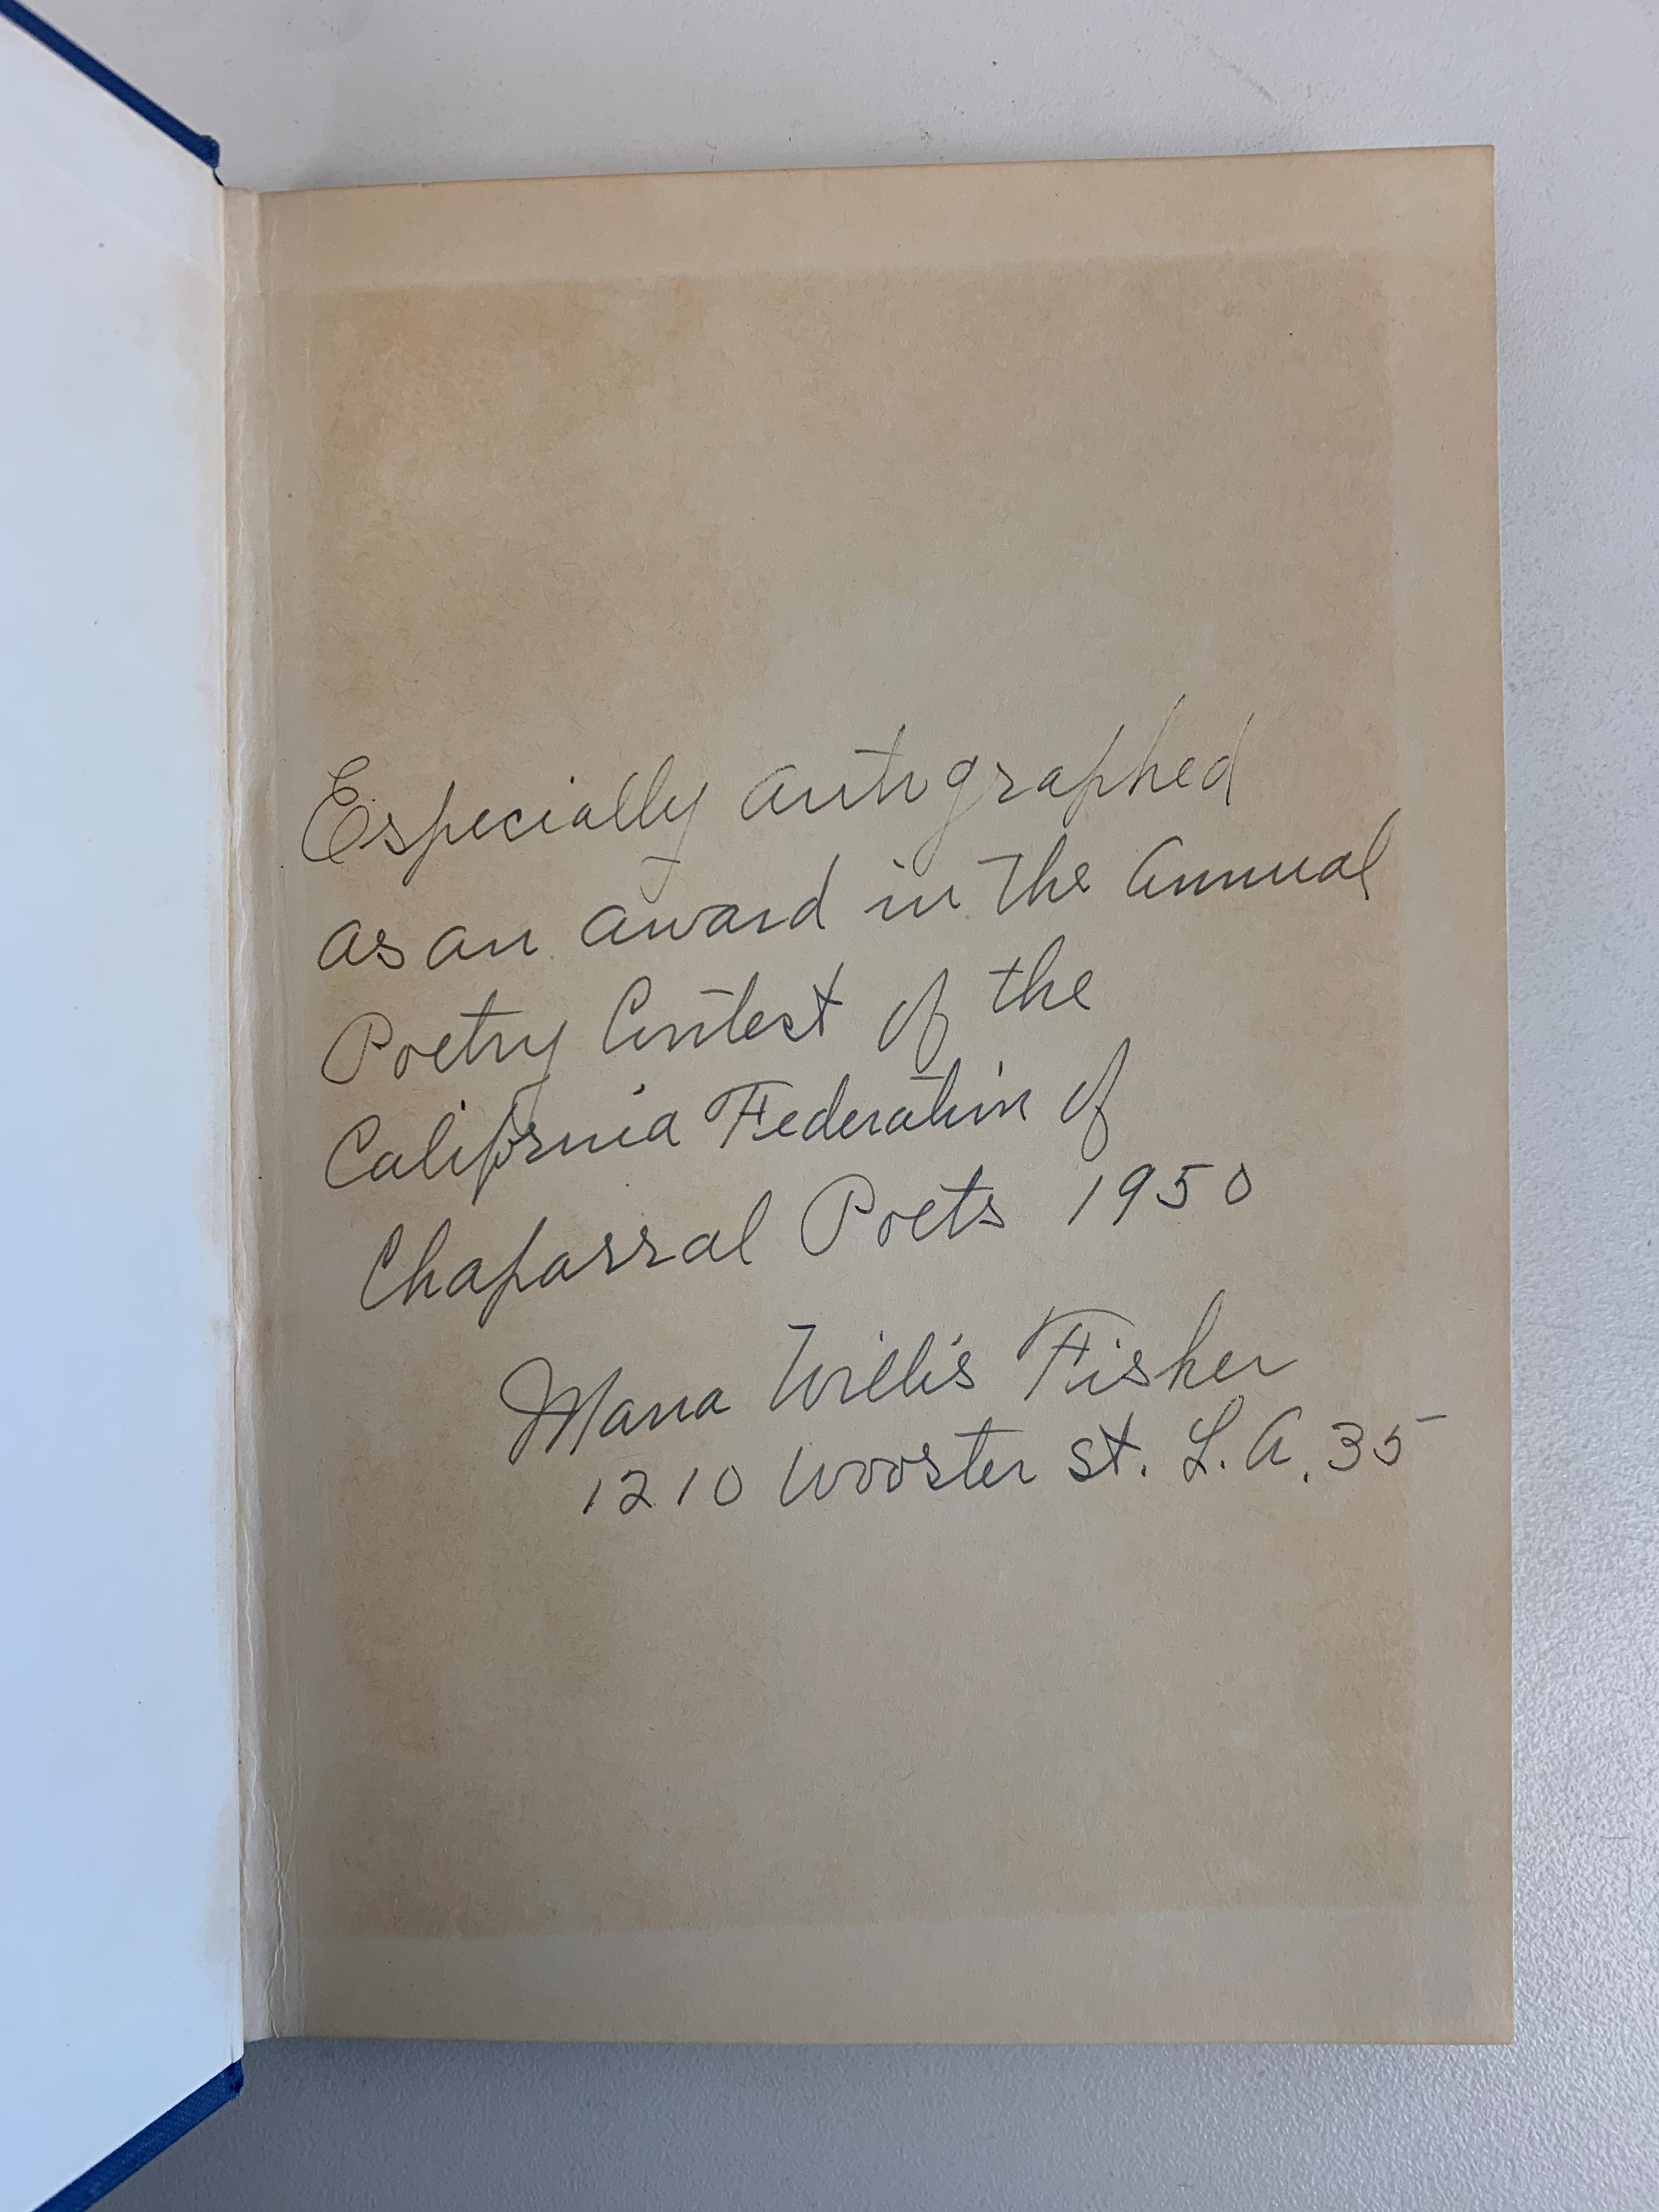 Especially autographed
as an award in the Annual
Poetry Contest of the
California Federation of
Chaparral Poets 1950
Willis Fisher
1210 Wooster st. L.A. 35